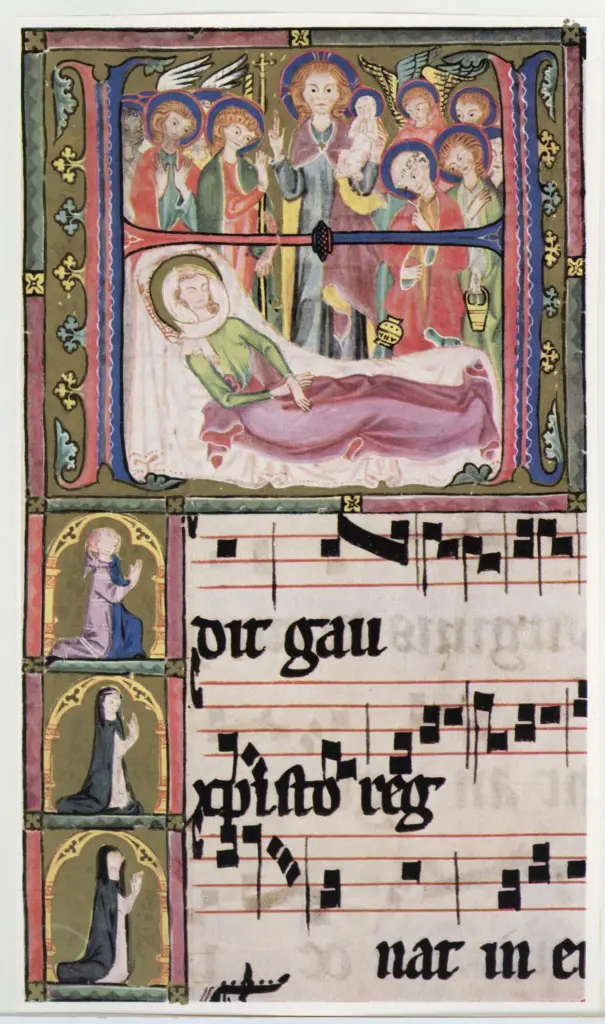 H
dit gau
xpisto reg
nat in